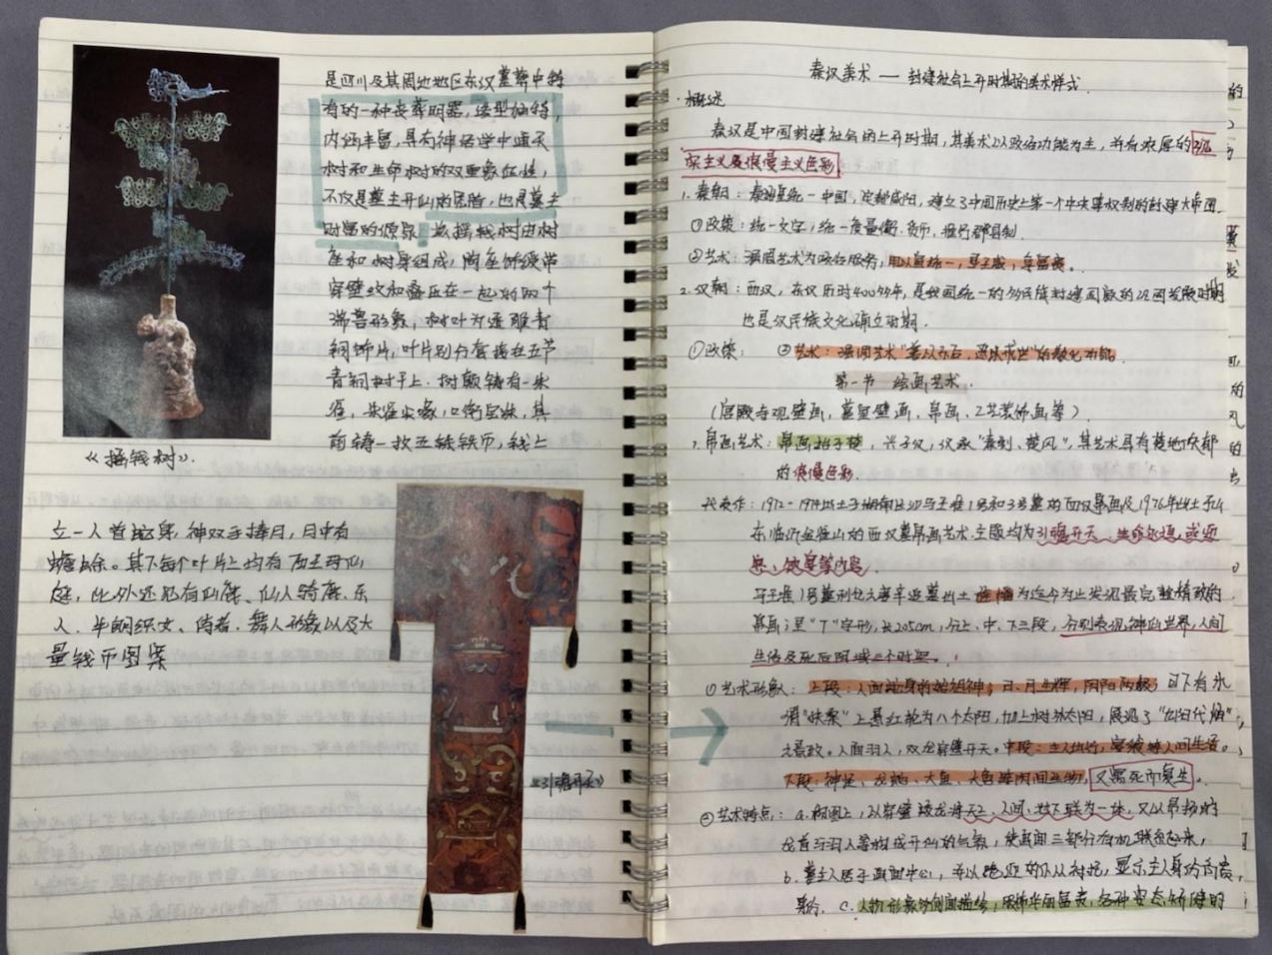 是四川及其周边地区东汉墓葬中特
有的一种丧葬明器，造型独特，
内涵丰富，具有神话学中通天
树和生命树的双重象征性，
不仅是墓主升仙的凭借，也是墓主
财富的源泉。该摇钱树由树
座和树身组成，陶座饰绶带
穿璧纹和叠压在一起的两个
瑞兽形象，树叶为透雕青
铜饰片，叶片别分套插在五节
青铜树干上。树颠铸有一朱
雀，朱雀尖喙，口衔宝珠，其
前铸一枚五铢铁币，钱上
《摇钱树》.
立一人首蛇身，神双手捧月，月中有
蟾蜍。其下每个叶片上均有西王母仙
庭，此外还见有仙鹿、仙人骑鹿、乐
人、牛郎织女、侍者、舞人形象以及大
量钱币图案
《引魂升天》
秦汉美术 —— 封建社会上升时期的美术样式.
·概述
秦汉是中国封建社会的上升时期，其美术以政治功能为主，并有浓厚的现
实主义及浪漫主义色彩
1. 秦朝：秦始皇统一中国，定都咸阳，建立了中国历史上第一个中央集权制的封建大帝国.
①政策：统一文字，统一度量衡、货币，推行郡县制.
②艺术：强调艺术为政治服务，用以显统一，显王威，显富贵。
2. 汉朝：西汉，东汉历时400余年，是我国统一的多民族封建国家的巩固发展时期
也是汉民族文化确立时期.
①政策： ②艺术：强调艺术"善以示后，恶以戒世"的教化功能.
第一节 绘画艺术.
（宫殿寺观壁画，墓室壁画、帛画、工艺装饰画等）
1. 帛画艺术：帛画始于楚，兴于汉，汉承"秦制、楚风"，其艺术具有楚地浓郁
的浪漫色彩.
代表作：1972-1974出土于湖南长沙马王堆1号和3号墓的西汉帛画及1976年出土于山
东临沂金雀山的西汉墓帛画艺术.主题均为引魂升天、
马王堆1号墓利仓夫妻辛追墓出土 为迄今为止发现最完整精致的
幕画；呈"T"字形，长205cm，分上、中、下三段，分别表现神仙世界，人间
生活及死后阴域三个时空。
①艺术形象：上段：人面蛇身的始祖神；日、月生辉，阴阳两极；日下有水
"扶桑"上悬红轮为八个太阳，加上树外太阳，展现了
。人面羽人，双龙穿璧升天。中段：主人出行，宴飨等人间生活。
下段：神怪、龙蛇、大鱼、 ，又寓死而复生。
②艺术特点：a. 构图上，以穿璧
龙首与羽人等构成升仙的气氛，使真间三部分有机联系起来，
b. 墓主人居于画面中心，并以跪迎的仆从衬托，显示主人身份高贵，
c. 人物形象多侧面描绘；服饰华丽富贵，各种姿态矫健的